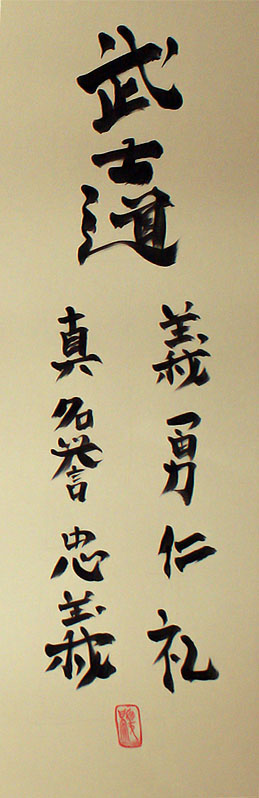 武士道
義勇仁礼
真名誉忠義